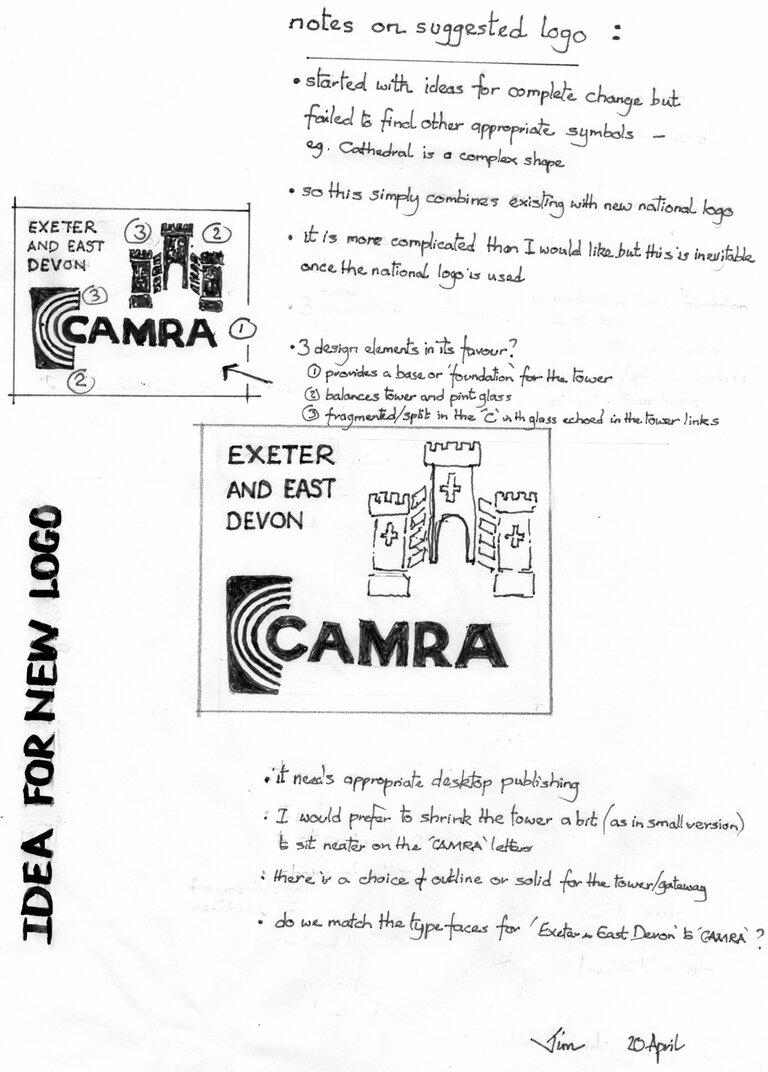 notes on suggested logo :
• started with ideas for complete change but
failed to find other appropriate symbols –
eg. Cathedral is a complex shape
• so this simply combines existing with new national logo
• it is more complicated than I would like but this is inevitable
once the national logo is used
• 3 design elements in its favour?
① provides a base or 'foundation' for the tower
② balances tower and pint glass
③ fragmented/split in the 'C' with glass echoed in the tower links
EXETER
AND EAST
DEVON
③ ②
③
CAMRA ①
②
EXETER
AND EAST
DEVON
CAMRA
IDEA FOR NEW LOGO
• it needs appropriate desktop publishing
• I would prefer to shrink the tower a bit (as in small version)
to sit neater on the 'CAMRA' letters
• there is a choice of outline or solid for the tower/gateway
• do we match the typefaces for 'Exeter & East Devon' to 'CAMRA' ?
Jim 20 April